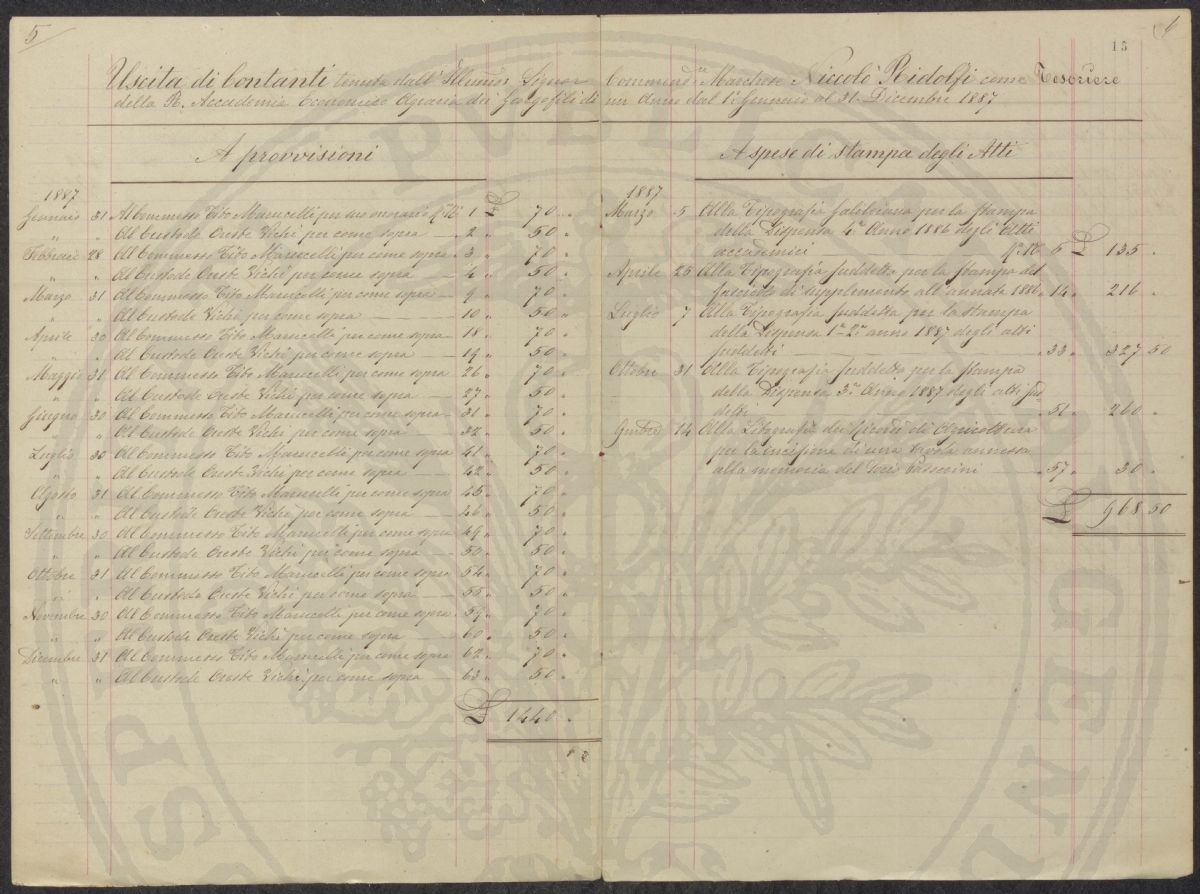 5
15
Uscita di Contanti tenuta dall' Illmo Signor Commend.re Marchese Niccolò Ridolfi come Tesoriere
della R. Accademia Economico Agraria dei Georgofili di un Anno dal 1° Gennaio al 31. Dicembre 1887
A provvisioni
1887
Gennaio 31 Al Commesso Tito Marucelli per suo onorario 1 £ 70 "
" " Al Custode Oreste Vichi per come sopra — 2 " 50 "
Febbraio 28 Al Commesso Tito Marucelli per come sopra 3 " 70 "
" " Al Custode Oreste Vichi per come sopra — 4 " 50 "
Marzo 31 Al Commesso Tito Marucelli per come sopra — 9 " 70 "
" " Al Custode Vichi per come sopra — 10 " 50 "
Aprile 30 Al Commesso Tito Marucelli per come sopra 18 " 70 "
" " Al Custode Oreste Vichi per come sopra — 19 " 50 "
Maggio 31 Al Commesso Tito Marucelli per come sopra 26 " 70 "
" " Al Custode Oreste Vichi per come sopra — 27 " 50 "
Giugno 30 Al Commesso Tito Marucelli per come sopra 31 " 70 "
" " Al Custode Oreste Vichi per come sopra — 32 " 50 "
Luglio 30 Al Commesso Tito Marucelli per come sopra 41 " 70 "
" " Al Custode Oreste Vichi per come sopra — 42 " 50 "
Agosto 31 Al Commesso Tito Marucelli per come sopra 45 " 70 "
" " Al Custode Oreste Vichi per come sopra — 46 " 50 "
Settembre 30 Al Commesso Tito Marucelli per come sopra 49 " 70 "
" " Al Custode Oreste Vichi per come sopra — 50 " 50 "
Ottobre 31 Al Commesso Tito Marucelli per come sopra 54 " 70 "
" " Al Custode Oreste Vichi per come sopra — 55 " 50 "
Novembre 30 Al Commesso Tito Marucelli per come sopra 59 " 70 "
" " Al Custode Oreste Vichi per come sopra — 60 " 50 "
Dicembre 31 Al Commesso Tito Marucelli per come sopra 62 " 70 "
" " Al Custode Oreste Vichi per come sopra — 63 " 50 "
£ 1440 "
A spese di stampa degli Atti
1887
Marzo 5 Alla Tipografia Galileiana per la stampa
della Dispensa 4a Anno 1886 degli Atti
accademici — 6 £ 135 "
Aprile 25 Alla Tipografia suddetta per la stampa del
fascicolo di supplemento all'annata 1886 " 14 " 216 "
Luglio 7 Alla Tipografia suddetta per la stampa
della Dispensa 1a 2a anno 1887 degli atti
suddetti — " 33 " 327 50
Ottobre 31 Alla Tipografia suddetta per la stampa
della Dispensa 3a Anno 1887 degli atti sud
detti — " 51 " 260 "
14 Alla Litografia dei Ricordi di Agricoltura
per la incisione di una tavola annessa
alla memoria del Passerini " 57 " 30 "
£ 968 50